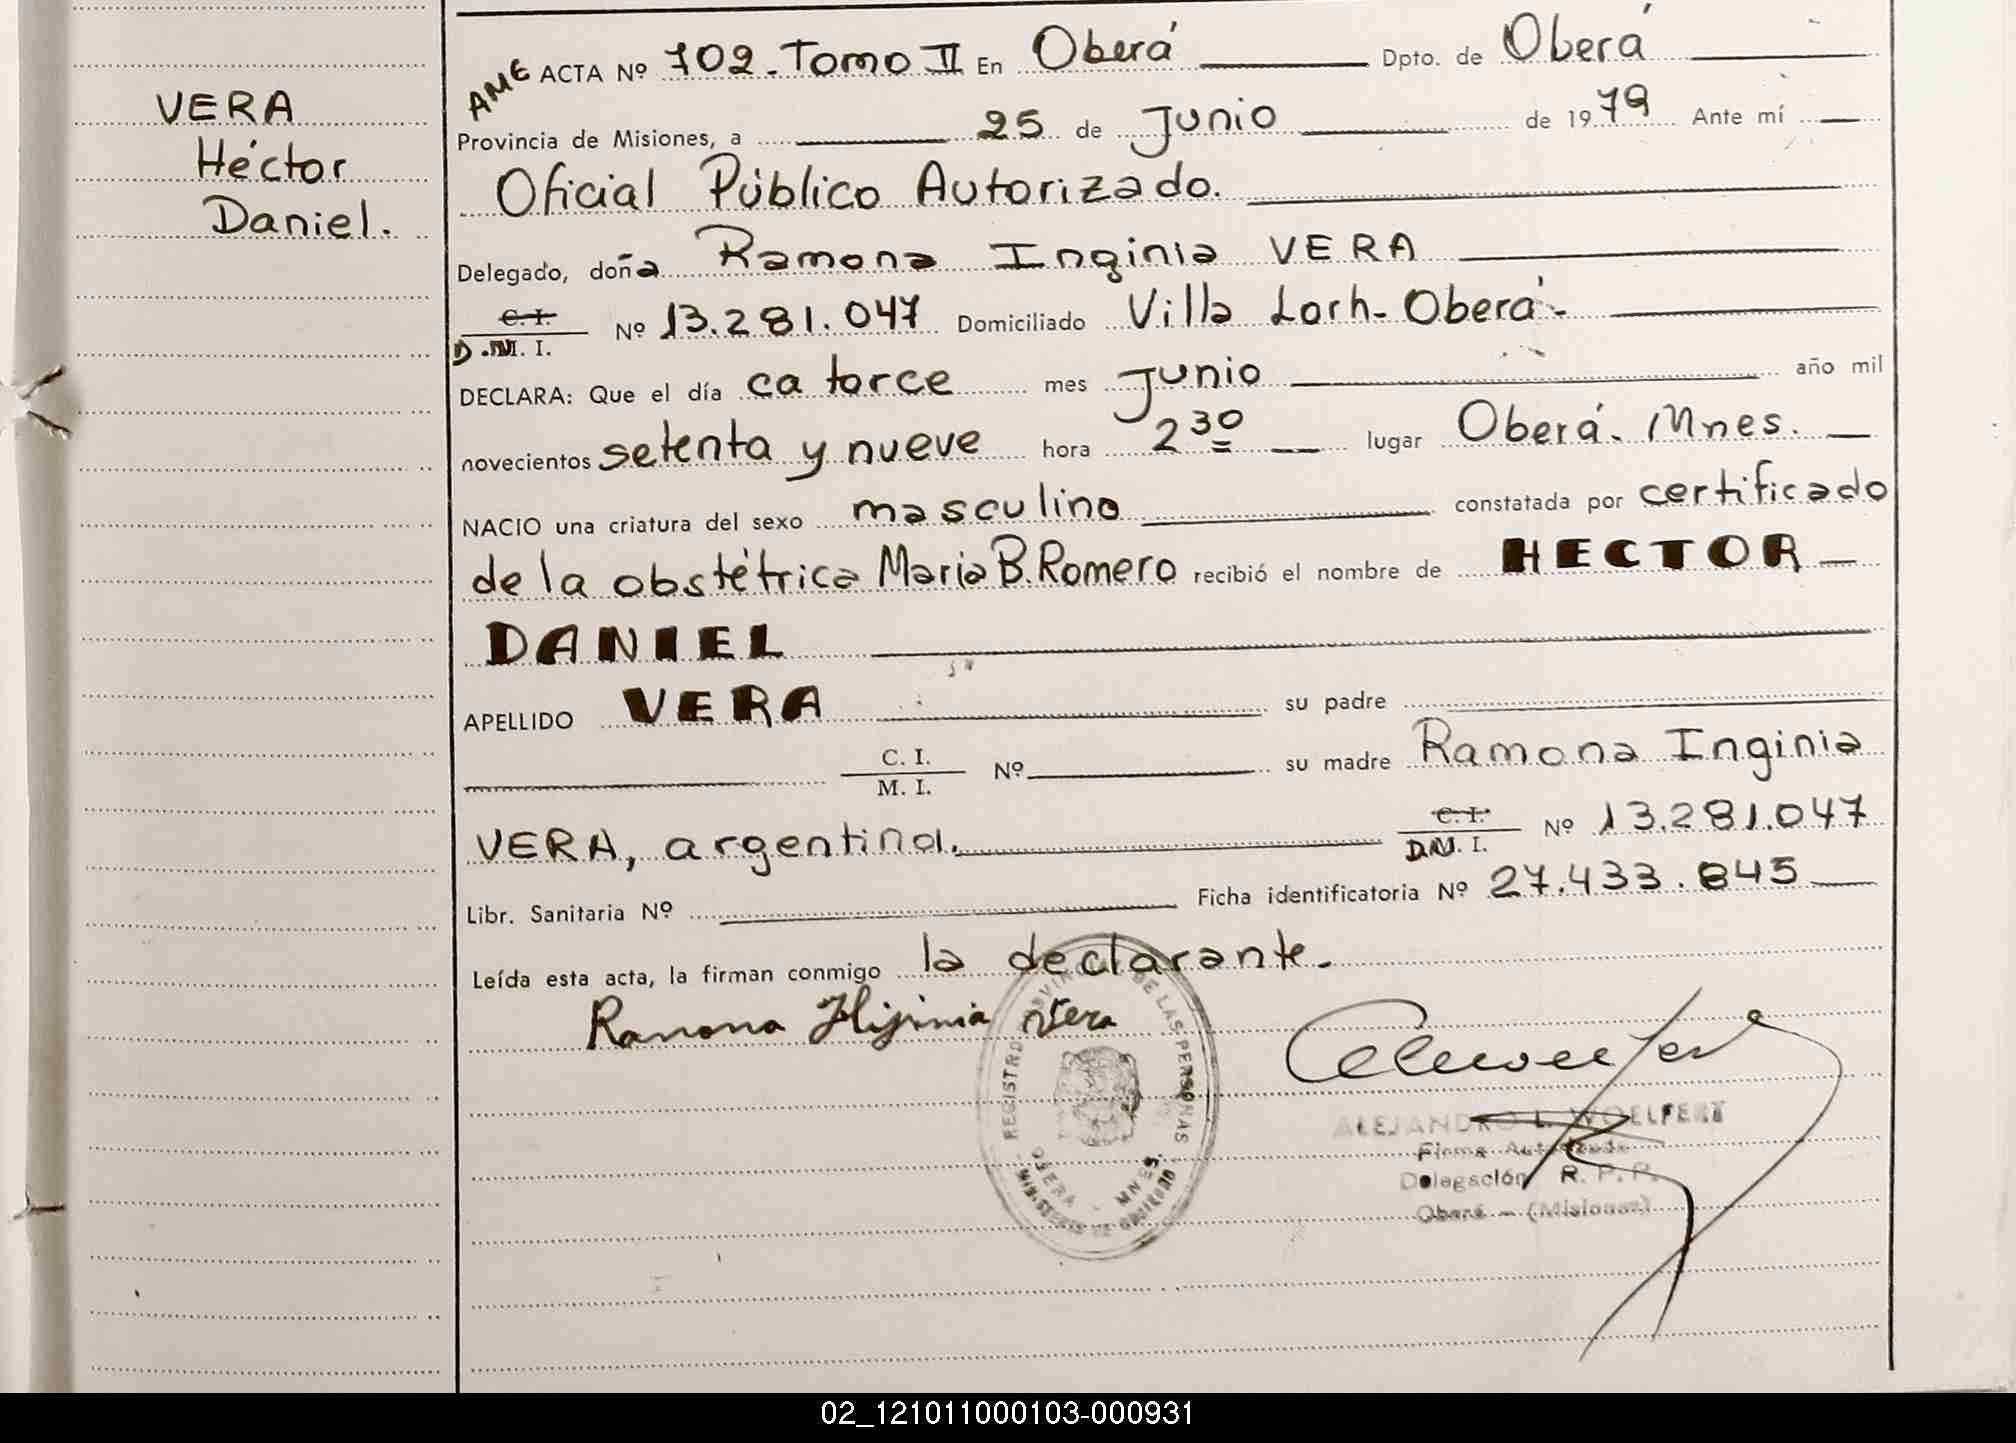 VERA
Héctor
Daniel.
AME ACTA Nº 702. Tomo II En Oberá Dpto. de Oberá
Provincia de Misiones, a 25 de Junio de 1979 Ante mí
Oficial Público Autorizado.
Delegado, doña Ramona Inginia VERA
C. I.
D.N. I. Nº 13.281.047 Domiciliado Villa Lorh - Oberá -
DECLARA: Que el día catorce mes Junio año mil
novecientos setenta y nueve hora 2 30 lugar Oberá. Mnes.
NACIO una criatura del sexo masculino constatada por certificado
de la obstétrica Maria B. Romero recibió el nombre de HECTOR
DANIEL
APELLIDO VERA su padre
C. I.
M. I. Nº su madre Ramona Inginia
VERA, argentina. C. I.
D.N. I. Nº 13.281.047
Libr. Sanitaria Nº Ficha identificatoria Nº 27.433.845
Leída esta acta, la firman conmigo la declarante.
Ramona Higinia Vera
REGISTRO PROVINCIAL DE LAS PERSONAS
OBERA - MNES.
MINISTERIO DE GOBIERNO
ALEJANDRO L. WOELFERT
Firma Autorizada
Delegación R. P. P.
Oberá - (Misiones)
02_121011000103-000931